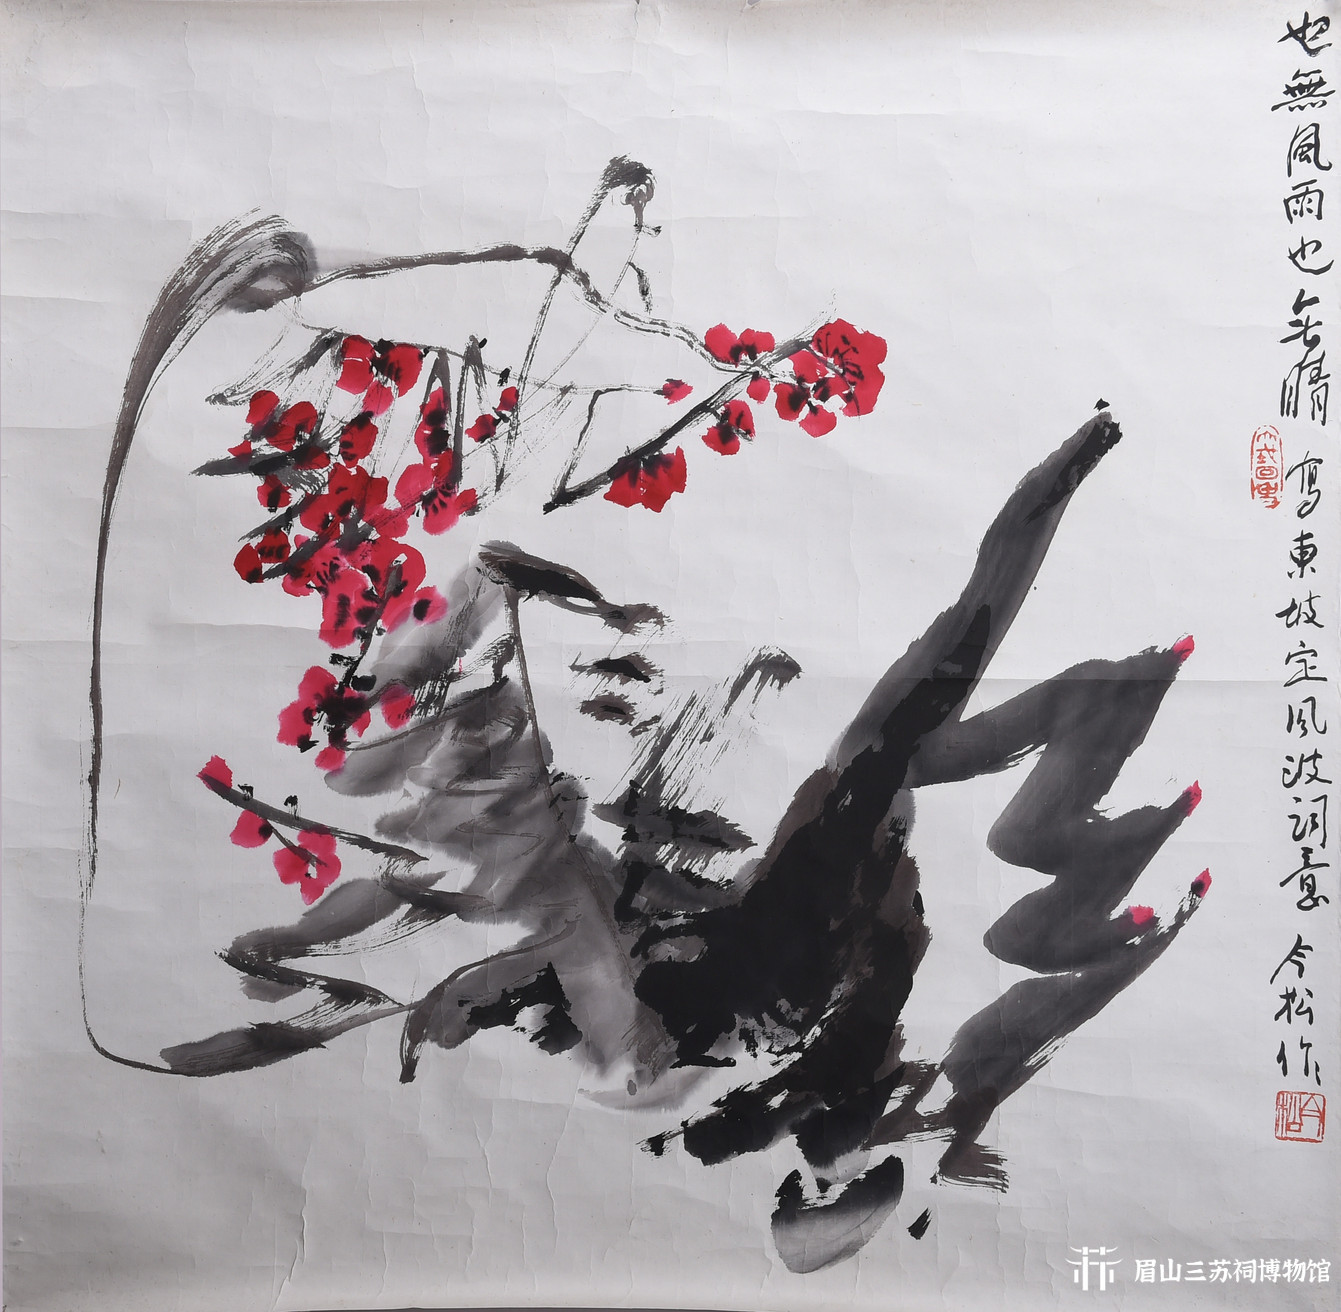 也無風雨也无晴 寫東坡定風波詞意 今松作
今松
眉山三苏祠博物馆